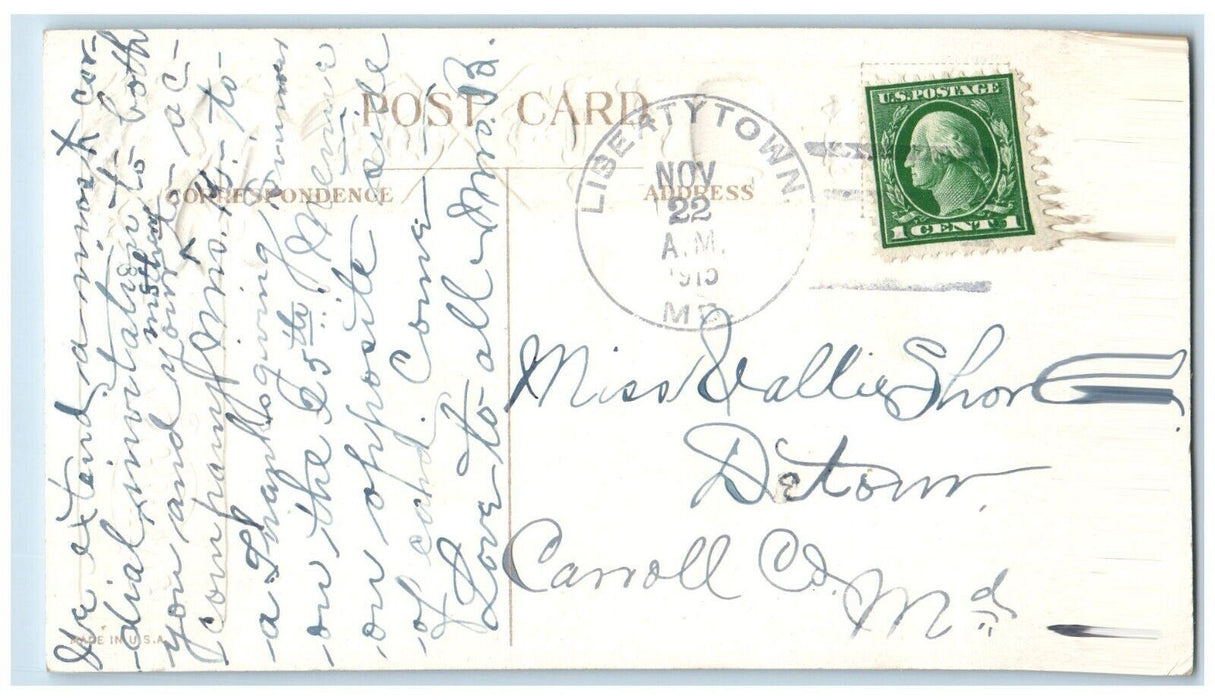 POST CARD
CORRESPONDENCE
ADDRESS
U.S. POSTAGE
1 CENT 1
LIBERTYTOWN.
NOV
22
A.M.
1915
MD.
We extend a most cor-
dial invitation to both
mother
you and your ac-
company Mrs. B. to
a Thanksgiving
on the 25th Menue
on opposite side
of card. Come
Love to all Mrs. B.
Miss Vallie Shor
Detour
Carroll Co.
Md
MADE IN U.S.A.